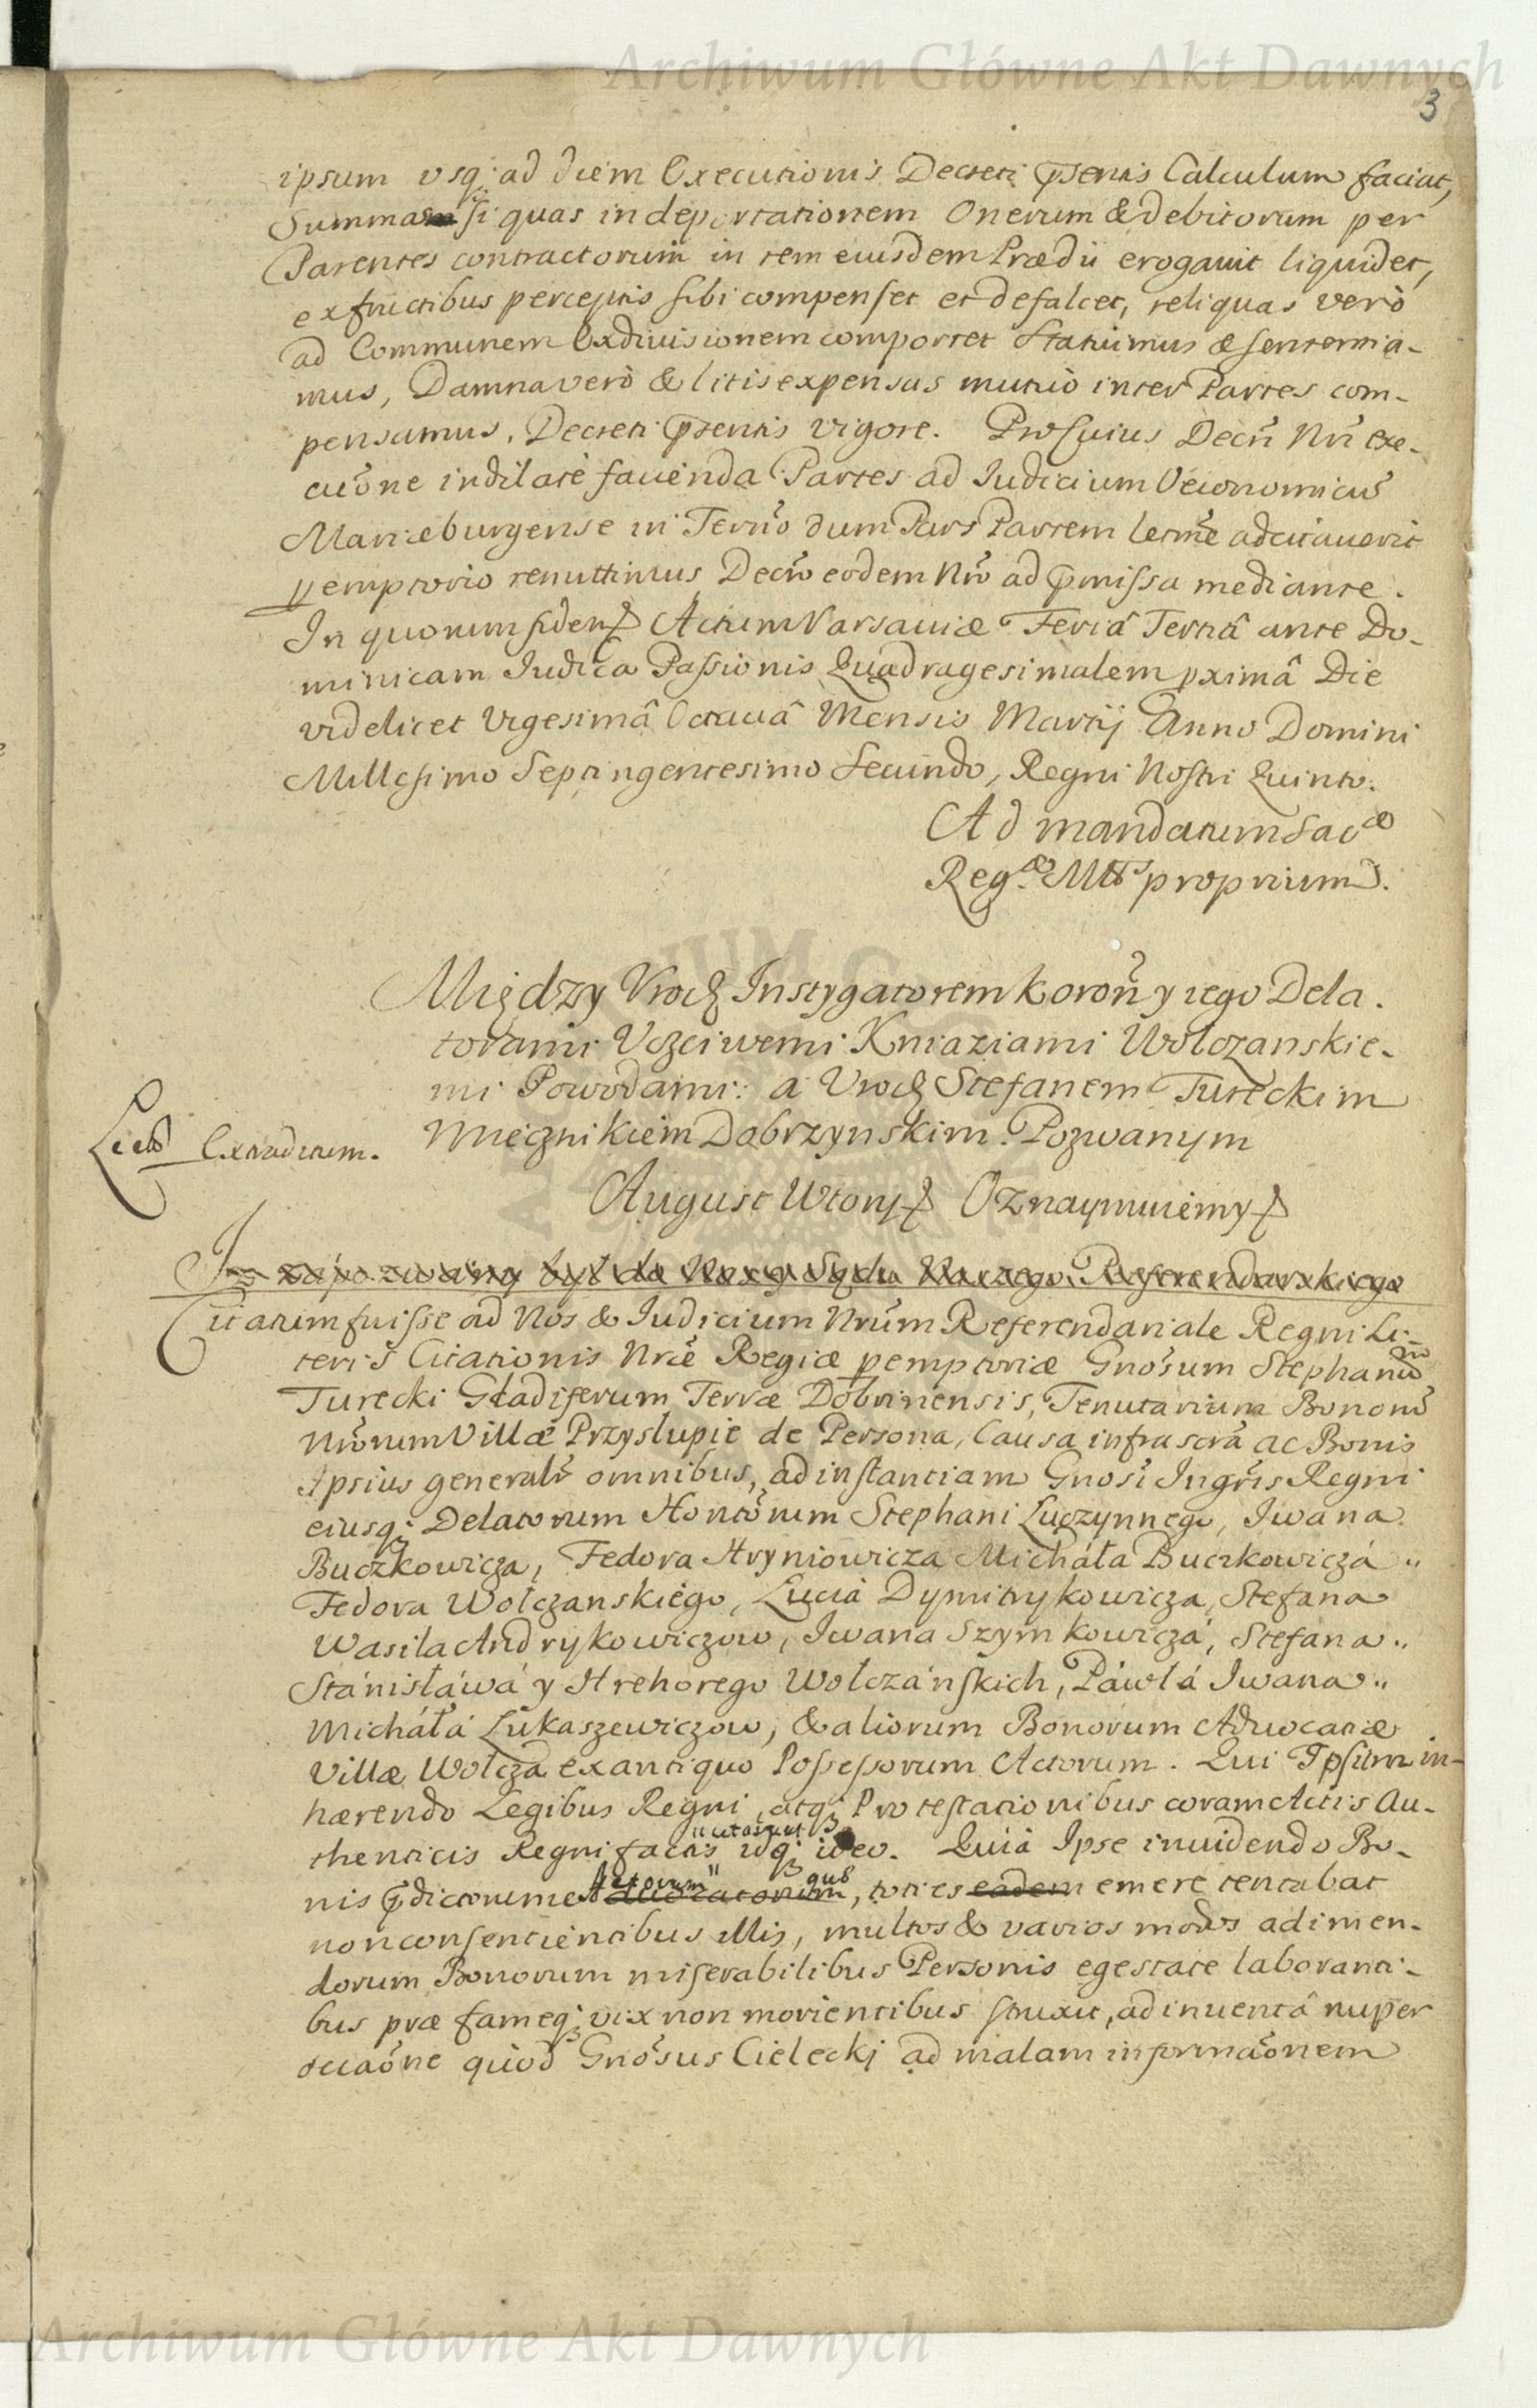 Archiwum Główne Akt Dawnych
3
ipsum usq; ad diem Executionis Decreti pñtis Calculum faciat,
Summas si quas in deportationem Onerum & debitorum per
Parentes contractorum in rem eiusdem Prædii erogauit liquidet,
ex fructibus perceptis sibi compenset et defalcet, reliquas verò
ad Communem Exdiuisionem comportet Statuimus & sententia-
mus, Damna verò & litis expensas mutuò inter Partes com-
pensamus, Decreti pñtis vigore. Pro cuius Decti Nri exe-
cuõne indilatè facienda Partes ad Iudicium Oeconomicũ
Marieburgense in Termõ dum Pars Partem legitmẽ adcitauerit
pemptorio remittimus Decto eodem Nrõ ad pmissa mediante.
In quorum fidem Actum Varsauiæ Feriâ Tertiâ ante Do-
minicam Iudica Passionis Quadragesimalem pximâ Die
videlicet Vigesimâ Octauâ Mensis Martij Anno Domini
Millesimo Septingentesimo Secundo, Regni Nostri Quinto.
Ad mandatum Sacæ
Regæ Mttis proprium.
Między Vrod Instygatorem Koroñ y iego Dela.
torami Vczciwemi Kniaziami Wołczanskie-
mi Powodami: a Vrod Stefanem Tureckim
Miecznikiem Dobrzynskim. Pozwanym
Extraditum.
August Wtory Oznaymuiemy
Iz zapozwany był do Nas y Sądu Naszego Referendarskiego
Citatum fuisse ad Nos & Iudicium Nrũm Referendariale Regni Li-
teris Citationis Nrẽ Regiæ pemptoriæ Gnõsum Stephanũ
Turecki Gładiferum Terræ Dobrinensis, Tenutarium Bonorũ
Nrõrum Villæ Przysłupie de Persona, Causa infrascrã ac Bonis
Ipsius generalr omnibus, ad instantiam Gnosi Ingtris Regni
eiusq; Delatorum Hontõrum Stephani Łuczynnego, Iwana
Buczkowicza, Fedora Hryniowicza Micháła Buczkowiczá
Fedora Wołczanskiego, Łucia Dymitrykowicza, Stefana
Wasila Andrykowiczow, Iwana Szymkowiczá, Stefana
Stánisłáwá y Hrehorego Wołczáńskich, Páwłá Iwana
Micháłá Łukaszewiczow, & aliorum Bonorum Aduocatiæ
Villæ Wołcza ex antiquo Possessorum Actorum. Qui Ipsum in-
hærendo Legibus Regni, atq; Protestationibus coram Actis Au-
thenticis Regni factis idq; ideo. Quia Ipse inuidendo Bo-
nis pdictorum Actorum, toties eadem emere tentabat
non consentientibus illis, multos & varios modos adimen-
dorum Bonorum miserabilibus Personis egestate laboranti-
bus præ fameq; vix non morientibus struxit, adinuentâ nuper
occaõne quod Gnõsus Cielecki ad malam informaõnem
Archiwum Główne Akt Dawnych